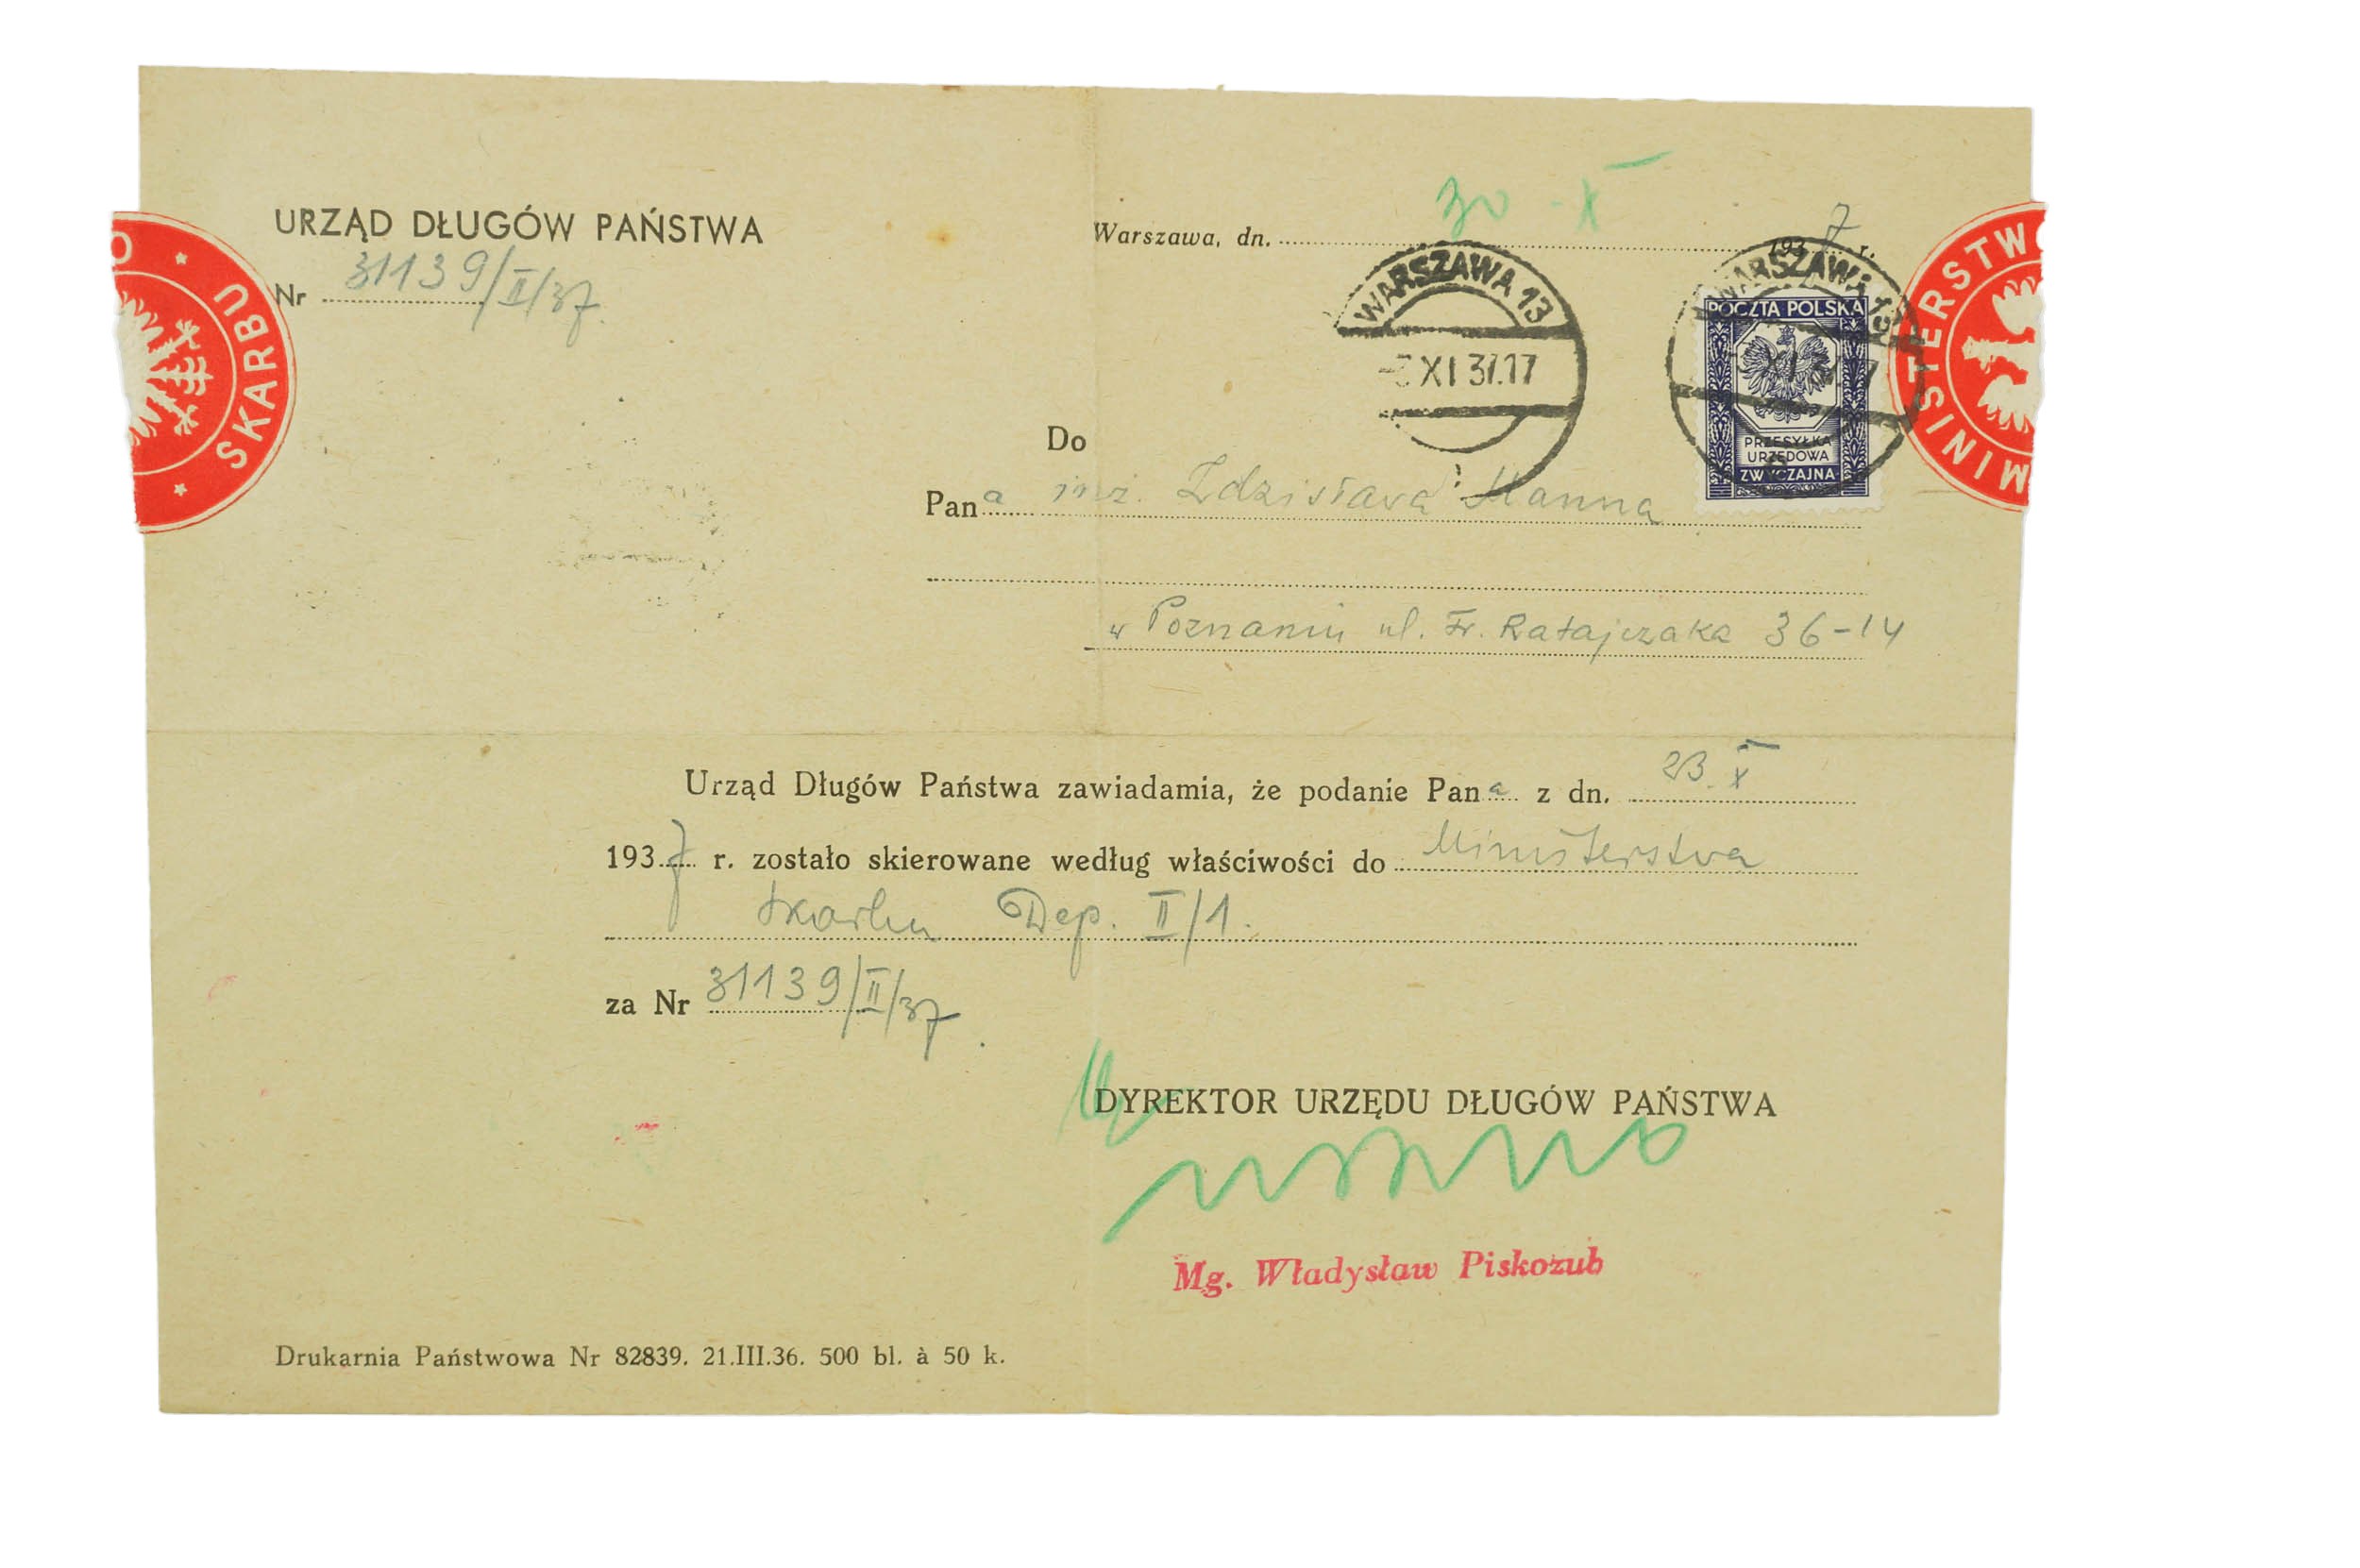 URZĄD DŁUGÓW PAŃSTWA
Warszawa, dn. 30 - X 1937 r.
Nr 31139/II/37.
SKARBU
MINISTERSTWO
WARSZAWA 13
XI 37.17
WARSZAWA 13
POCZTA POLSKA
PRZESYŁKA
URZĘDOWA
ZWYCZAJNA
Do
Pana inż. Zdzisława Manna
w Poznaniu ul. Fr. Ratajczaka 36-14
Urząd Długów Państwa zawiadamia, że podanie Pana z dn. 23.X
1937 r. zostało skierowane według właściwości do Ministerstwa
Skarbu Dep. II/1.
za Nr 31139/II/37.
DYREKTOR URZĘDU DŁUGÓW PAŃSTWA
Mg. Władysław Piskozub
Drukarnia Państwowa Nr 82839. 21.III.36. 500 bl. à 50 k.